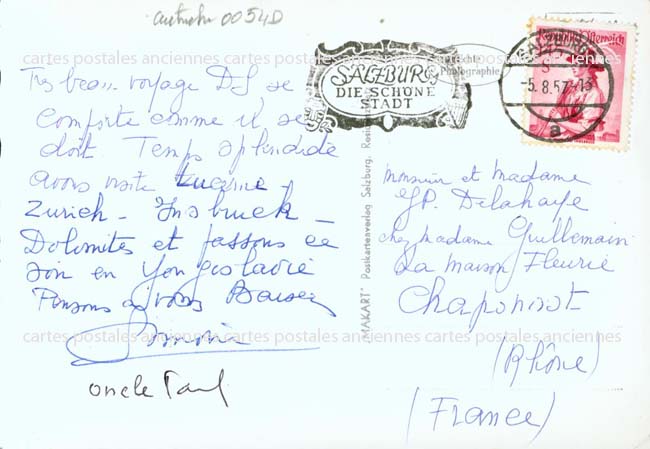 autriche 0054D
cartes postales anciennes cartes postales anciennes cartes postales anciennes
Tres beau voyage DS se
comporte comme il se
doit Temps splendide
avons visite Lucerne -
Zurich - Insbruck -
Dolomites et passons ce
soir en Yougoslavie
Pensons a vous Baisers
cartes postales anciennes cartes postales anciennes cartes postales anciennes
Simone
oncle Paul
SALZBURG
DIE SCHÖNE
STADT
Echte
Photographie
Republik Österreich
SALZBURG
-5.8.57-13
a
"MAKART" Postkartenverlag Salzburg,
Monsieur et Madame
JP. Delahaye
chez Madame Guillemain
La Maison Fleurie
Chaponost
(Rhône)
(France)